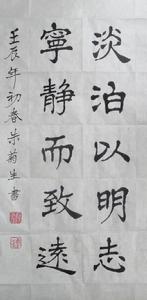 淡泊以明志
寧静而致遠
壬辰年初春柴菊生書